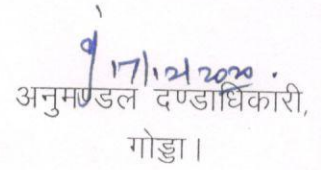 17/12/2020.
अनुमण्डल दण्डाधिकारी,
गोड्डा।